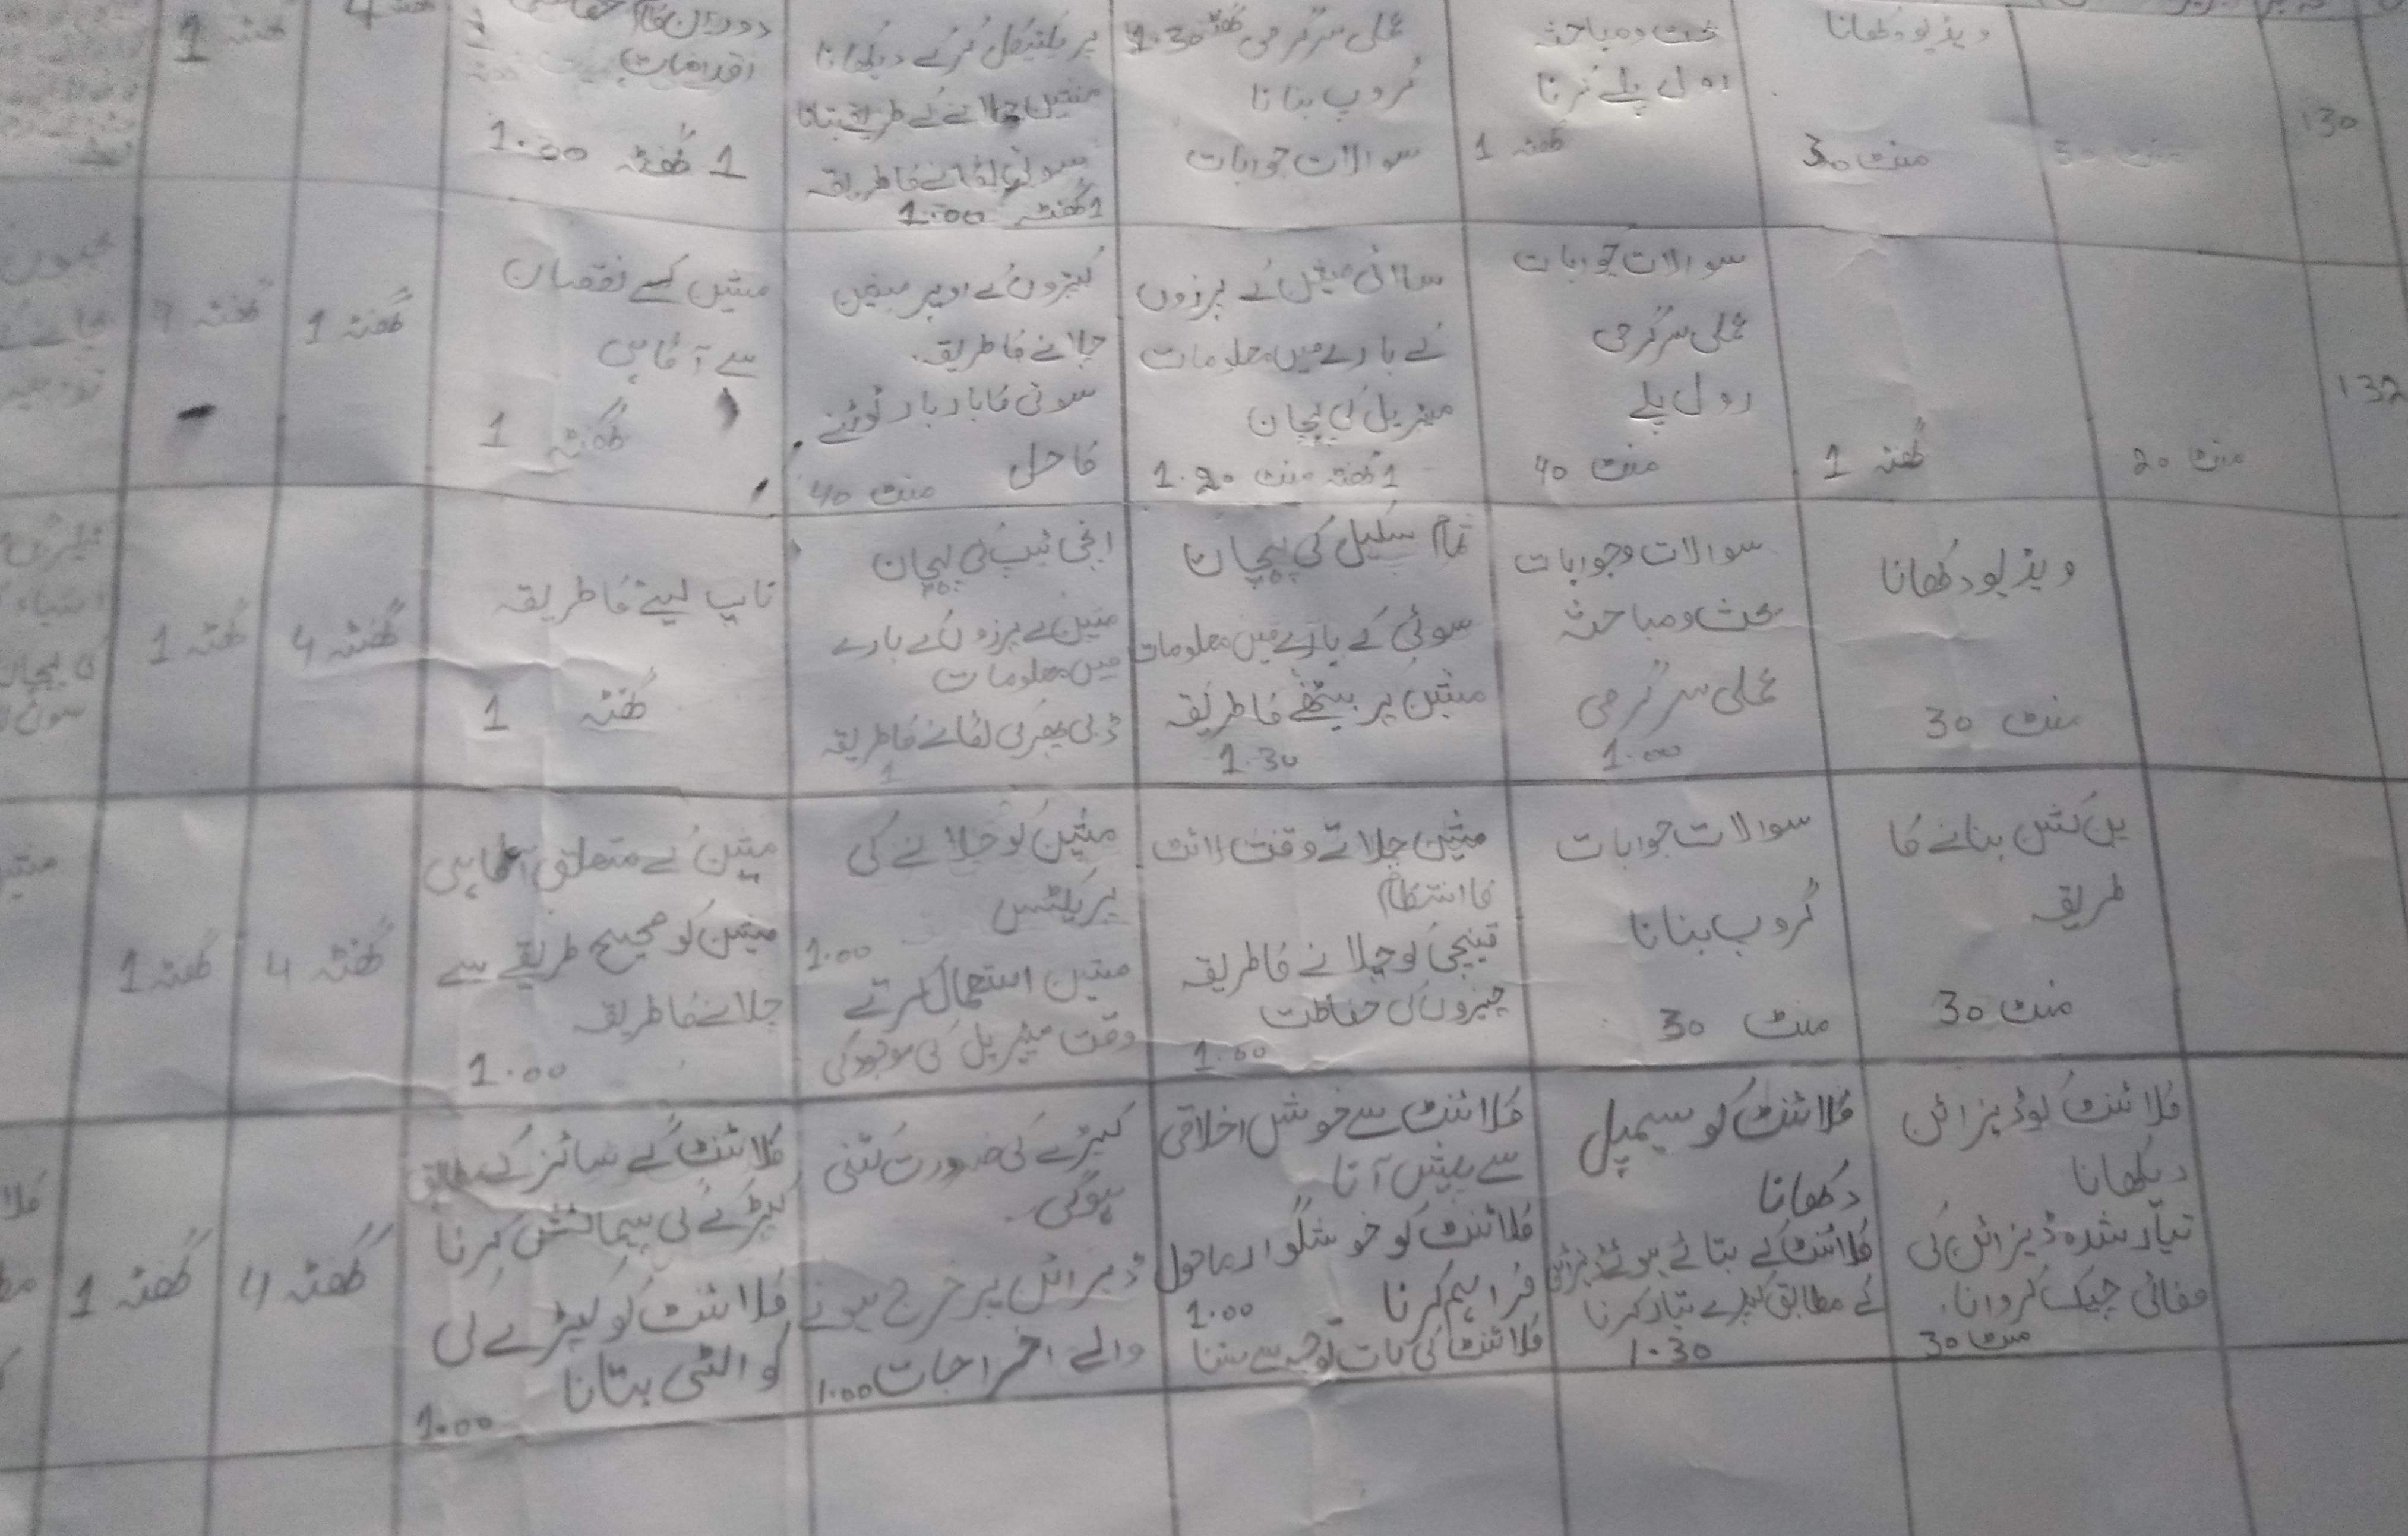 130
ویڈیو دکھانا
منٹ 30
بحث و مباحثہ
رول پلے کرنا
گھنٹہ 1
عملی سرگرمی گھنٹہ 1.30
گروپ بنانا
سوالات جوابات
پریکٹیکل کرکے دیکھانا
مشین چلانے کے طریقے بتانا
سوئی لگانے کا طریقہ
1 گھنٹہ 1.00
اقدامات
1 گھنٹہ 1.00
گھنٹہ 1
132
منٹ 20
گھنٹہ 1
سوالات جوابات
عملی سرگرمی
رول پلے
منٹ 40
سلائی مشین کے پرزوں
کے بارے میں معلومات
میٹریل کی پہچان
1 گھنٹہ منٹ 1.20
کپڑوں کے اوپر مشین
چلانے کا طریقہ.
سوئی کا بار بار ٹوٹنے
کا حل
منٹ 40
مشین کے نقصان
سے آگاہی
گھنٹہ 1
گھنٹہ 1
گھنٹہ 1
ویڈیو دکھانا
منٹ 30
سوالات و جوابات
بحث و مباحثہ
عملی سرگرمی
1.00
تمام سکیل کی پہچان
سوئی کے بارے میں معلومات
مشین پر بیٹھنے کا طریقہ
1.30
انچی ٹیپ کی پہچان
مشین کے پرزوں کے بارے
میں معلومات
ڈبی پھرکی لگانے کا طریقہ
1
ناپ لینے کا طریقہ
گھنٹہ 1
گھنٹہ 4
گھنٹہ 1
پن کشن بنانے کا
طریقہ
منٹ 30
سوالات جوابات
گروپ بنانا
منٹ 30
مشین چلاتے وقت لائٹ
کا انتظام
قینچی کو چلانے کا طریقہ
چیزوں کی حفاظت
1.00
مشین کو چلانے کی
پریکٹس
1.00
مشین استعمال کرتے
وقت میٹریل کی موجودگی
مشین کے متعلق آگاہی
مشین کو صحیح طریقے سے
چلانے کا طریقہ
1.00
گھنٹہ 4
گھنٹہ 1
کلائنٹ کو ڈیزائن
دیکھانا
تیار شدہ ڈیزائن کی
صفائی چیک کروانا.
منٹ 30
کلائنٹ کو سیمپل
دکھانا
کلائنٹ کے بتائے ہوئے ڈیزائن
کے مطابق کپڑے تیار کرنا
1.30
کلائنٹ سے خوش اخلاقی
سے پیش آنا
کلائنٹ کو خوشگوار ماحول
فراہم کرنا
1.00
کلائنٹ کی بات توجہ سے سننا
کپڑے کی ضرورت کتنی
ہوگی.
ڈیزائن پر خرچ ہونے
والے اخراجات 1.00
کلائنٹ کے سائز کے مطابق
کپڑے کی پیمائش کرنا
کلائنٹ کو کپڑے کی
کوالٹی بتانا
1.00
گھنٹہ 4
گھنٹہ 1